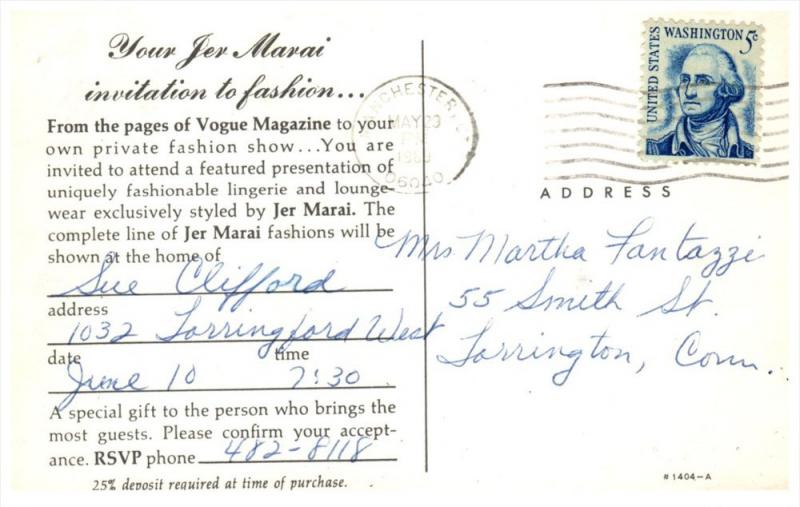 Your Jer Marai
invitation to fashion...
From the pages of Vogue Magazine to your
own private fashion show...You are
invited to attend a featured presentation of
uniquely fashionable lingerie and lounge-
wear exclusively styled by Jer Marai. The
complete line of Jer Marai fashions will be
shown at the home of
Sue Clifford
address
1032 Torringford West
date time
June 10 7:30
A special gift to the person who brings the
most guests. Please confirm your accept-
ance. RSVP phone 482-8118
25% deposit required at time of purchase.
NCHESTER,
MAY 29
PM
06040
UNITED STATES
WASHINGTON 5c
ADDRESS
Mrs Martha Fantazzi
55 Smith St.
Torrington, Conn.
#1404-A